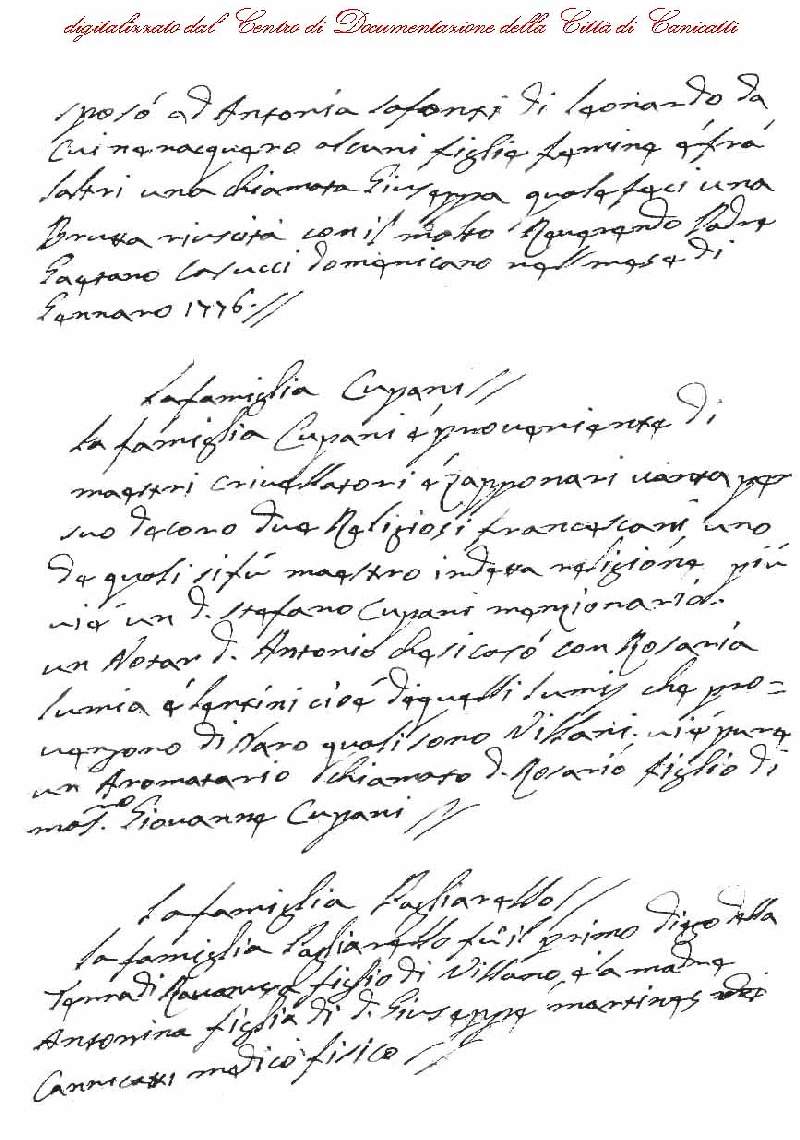 digitalizzato dal Centro di Documentazione della Città di Canicattì
sposò ad Antonia Lafonti di Leonardo da
Cui ne nacquero alcuni figlie femine é frà
laltri una chiamata Giuseppa quale feci una
Brutta riuscita con il molto Reverendo Padre
Gaetano Carucci Domenicano nell mese di
Gennaro 1776.//
La famiglia Cupani//
La famiglia Cupani é proveniente di
maestri crivellatori é zapponari vanta per
suo decoro due Religiosi francescani uno
de quali si fú maestro in detta religione più
vié un d. Stefano Cupani menzionario.
un Notar d. Antonio che si casò con Rosaria
Lumia é Lentini cioé de quelli Lumij che pro=
vengono di Naro quali sono Villani. vié pure
un Aromatario chiamato d. Rosario figlio di
mas.ro Giovanne Cupani //
La famiglia Pagliarello//
La famiglia Pagliarello fú il primo diego della
Terra di Ravanusa figlio di Villano é la madre
Antonina figlia di d. Giuseppe martines
Cannicatti medico fisico //